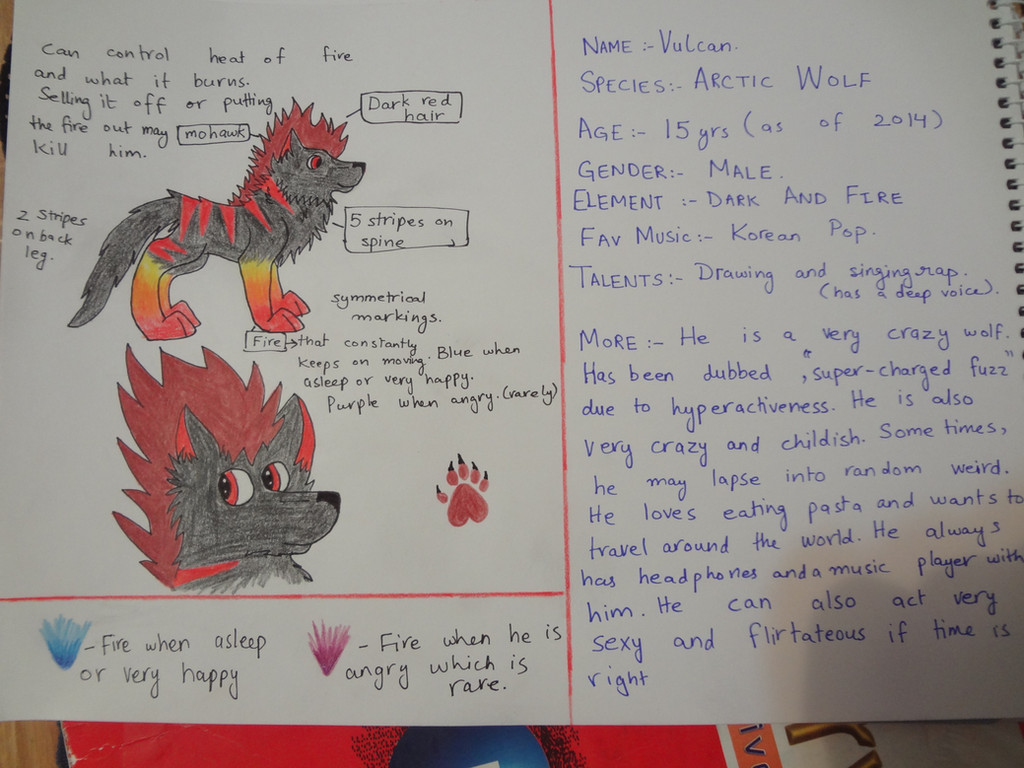 Can control heat of fire
and what it burns.
Selling it off or putting
the fire out may
kill him.
mohawk
Dark red
hair
2 Stripes
on back
leg.
5 stripes on
spine
symmetrical
markings.
Fire → that constantly
keeps on moving. Blue when
asleep or very happy.
Purple when angry. (rarely)
- Fire when asleep
or very happy
- Fire when he is
angry which is
rare.
NAME :- Vulcan.
SPECIES:- ARCTIC WOLF
AGE:- 15 yrs (as of 2014)
GENDER:- MALE.
ELEMENT :- DARK AND FIRE
FAV MUSIC:- Korean Pop.
TALENTS:- Drawing and singing rap.
(has a deep voice).
MORE:- He is a very crazy wolf.
Has been dubbed "super-charged fuzz"
due to hyperactiveness. He is also
very crazy and childish. Some times,
he may lapse into random weird.
He loves eating pasta and wants to
travel around the world. He always
has headphones and a music player with
him. He can also act very
sexy and flirtateous if time is
right